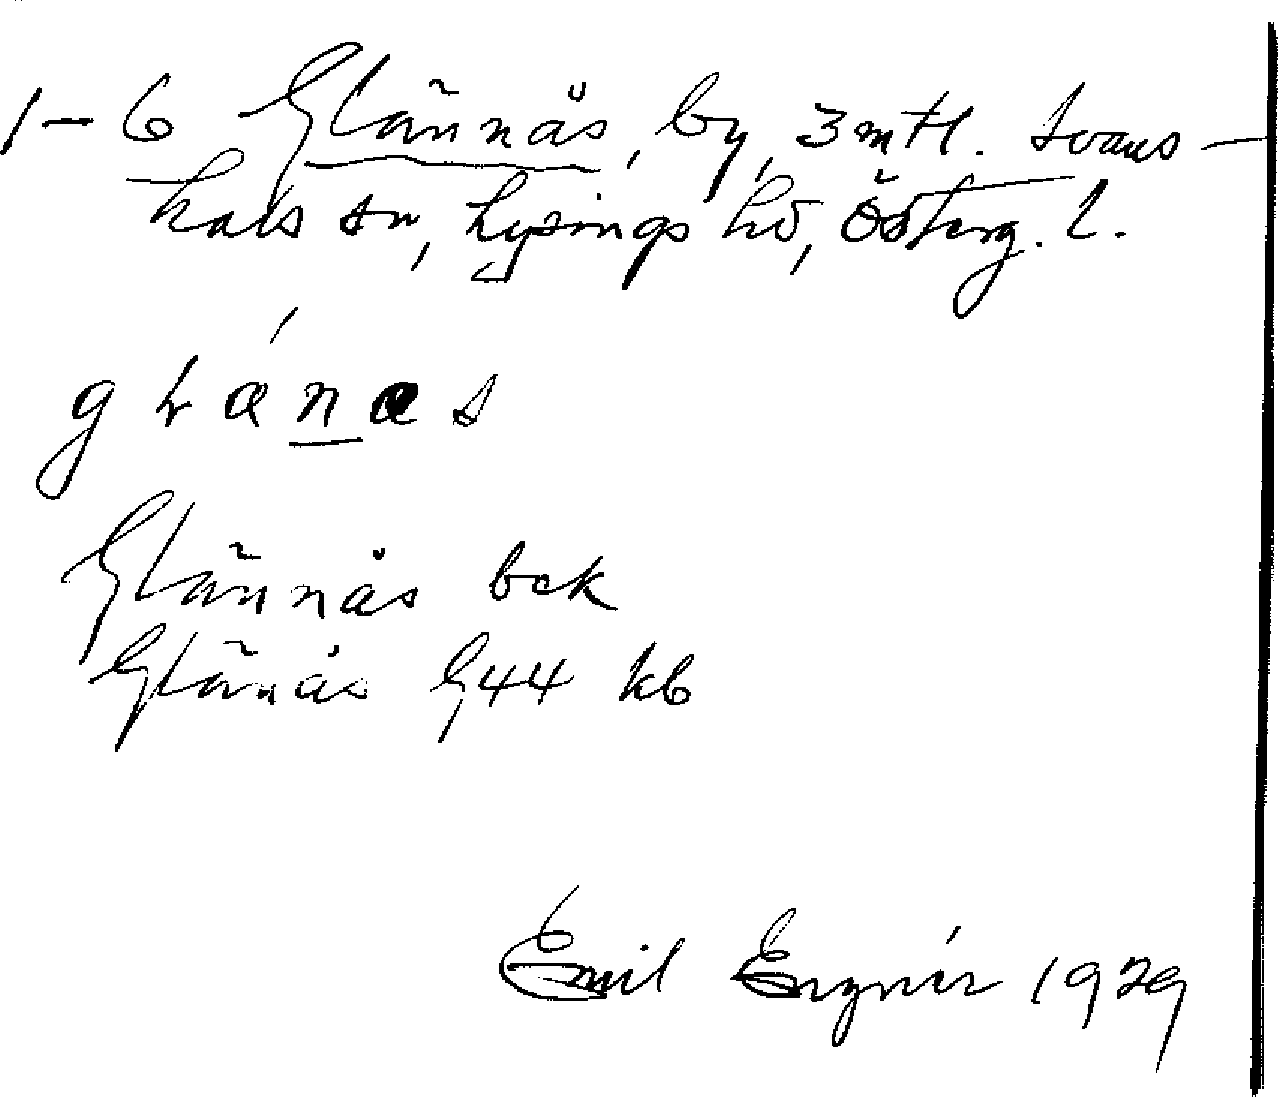 1-6 Glännäs, by, 3 mtl. Svans-
hals sn, Lysings hd, Österg. l.
glánas
Glännäs bck
Glänäs G44 kb
Emil 1929